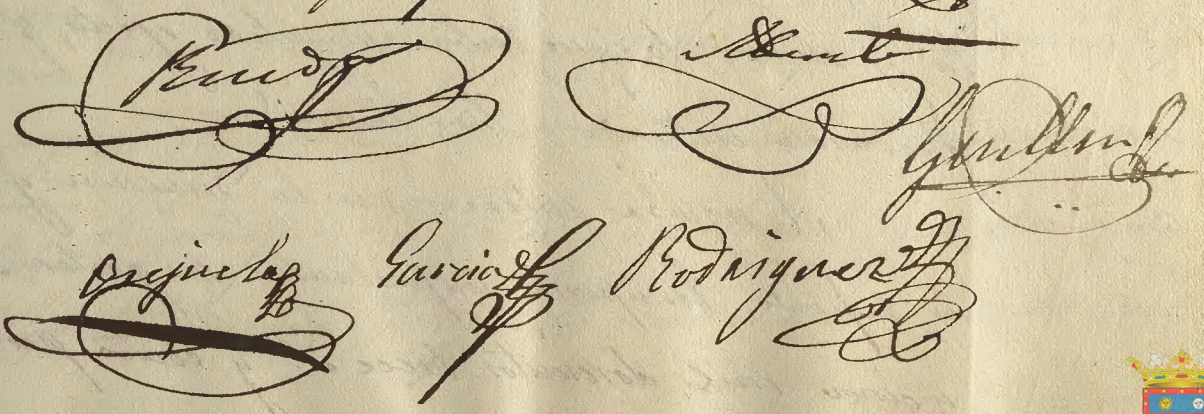 Rueda
Guillen
Orejuela Garcia Rodriguez